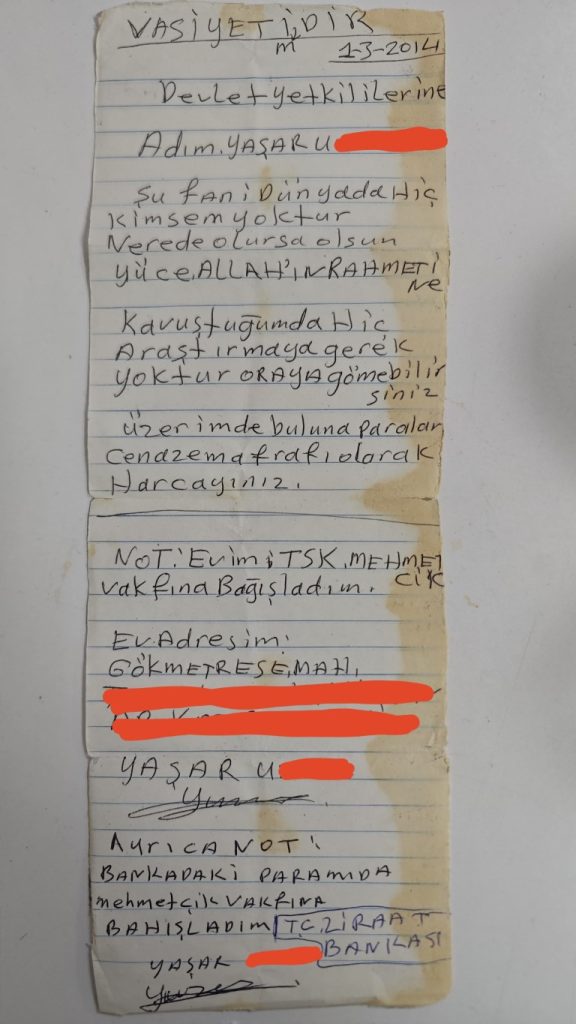 VASİYETİMDİR
1-3-2014
Devlet yetkililerine
Adım. YAŞAR U
Şu fani Dünyada Hiç
Kimsem yoktur
Nerede olursa olsun
yüce. ALLAH'IN RAHMETİ
NE
Kavuştuğumda Hiç
Araştırmaya gerek
yoktur ORAYA gömebilir
siniz
üzerimde buluna paralar
cenaze mafrafı olarak
Harcayınız.
NOT: Evimi TSK. MEHMET
CİK
vakfına Bağışladım.
Ev. Adresim:
GÖKMETRESE. MAH.
YAŞAR U
AYRICA NOT:
BANKADAKİ PARAMIDA
mehmetçik VAKFINA
BAHIŞLADIM TC. ZİRAAT
BANKASI
YAŞAR